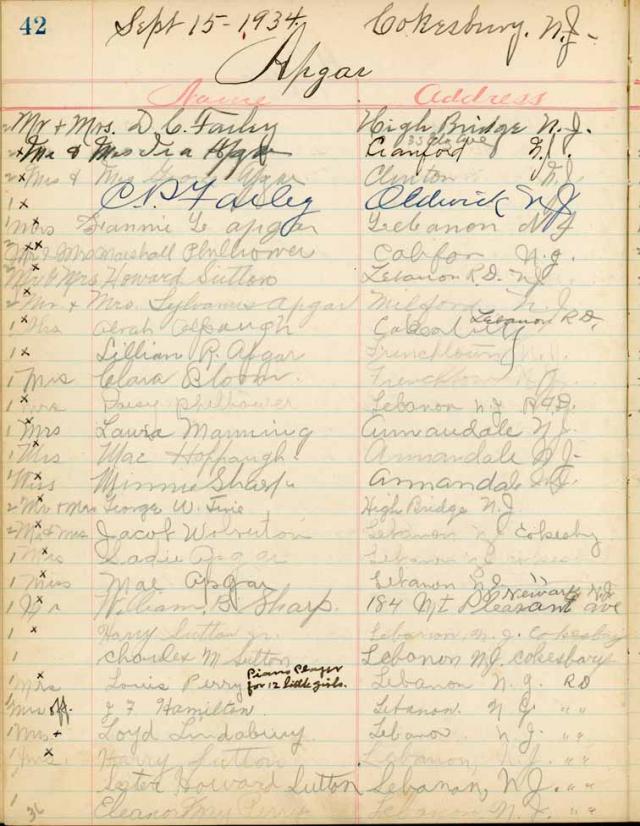 42 Sept 15-1934. Cokesbury. N.J-
Apgar
Name Address
2 Mr + Mrs. D. C. Farley High Bridge N.J.
2x Mr & Mrs Ira Apgar Cranford N.J.
2x Mrs & Apgar Clinton N.J.
1 x C P Farley Oldwick N J
1 Mrs Apgar Lebanon N J
2 Mr & Mrs Marshall Philhower Califon N.J.
Mr & Mrs Howard Sutton Lebanon R.D. N.J
2 Mr & Mrs. Sylvanus Apgar Milford N. J.
1 x Mrs Alpaugh Lebanon R.D.
1 x Lillian R. Apgar Frenchtown N.J.
1 Mrs Clara Bloom. Frenchtown N.J.
1 Mrs Daisy Philhower Lebanon N J R.F.D.
1 Mrs Laura Manning Annandale N.J.
1 Mrs Mae Hoppaugh Annandale N.J-
1 Miss Minnie Sharp Annandale N.J.
2 Mr & Mrs George W. High Bridge N.J
2 Mr & Mrs Jacob Wolverton Lebanon N J Cokesby
1 Mrs Sadie Apgar Lebanon N J
1 Miss Mae Apgar Lebanon " "
1 Mr William B Sharp. 184 Mt Pleasant ave Newark N.J.
1 x Harry Sutton jr. Lebanon, N.J. Cokesbury
1 Charles M Sutton Lebanon N.J. cokesbury
1 Mrs Louis Perry Piano Player for 12 little girls. Lebanon N.J. RD
Mrs off. J F Hamilton Lebanon. N J. " "
1 Mrs + Loyd Lindabury Lebanon N J. " "
1 Mrs. Harry Sutton Lebanon, N.J. " "
Lester Howard Sutton Lebanon, N.J. " "
1 36 Eleanor May Perry Lebanon N.J. " "